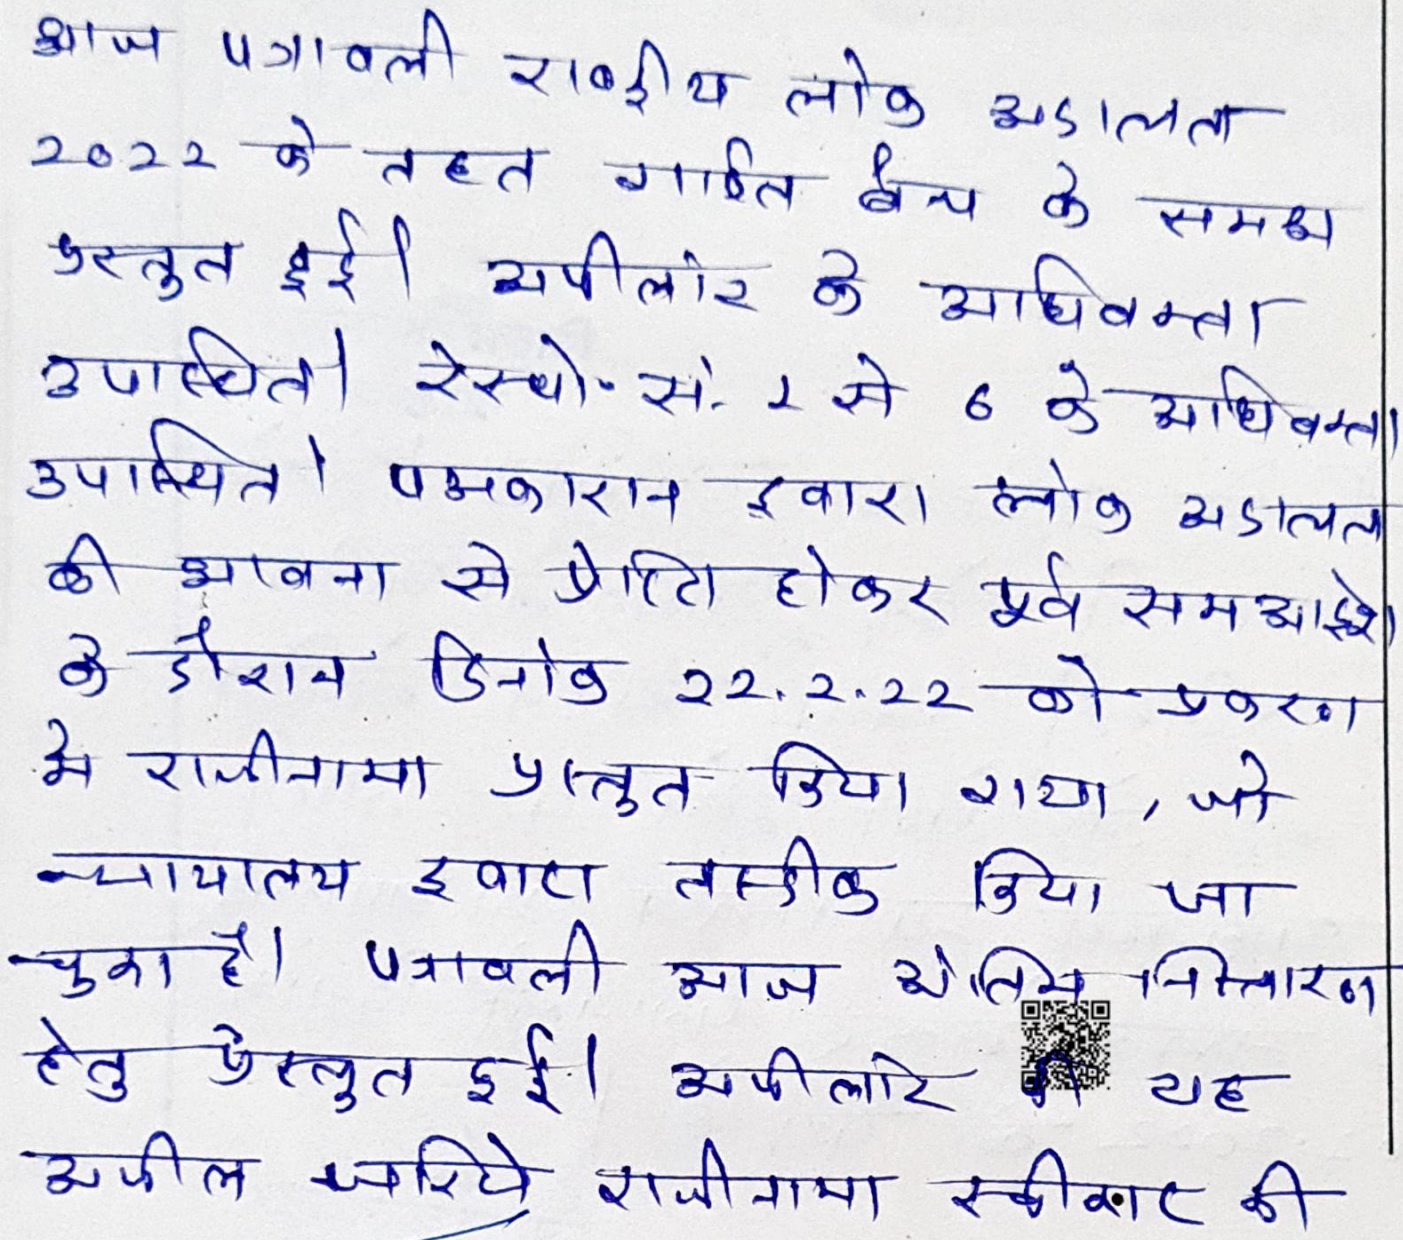 आज पत्रावली राष्ट्रीय लोक अदालत
2022 के तहत गठित बैंच के समक्ष
प्रस्तुत हुई। अपीलांट के अधिवक्ता
उपस्थित। रेस्पो. सं. 1 से 6 के अधिवक्ता
उपस्थित। पक्षकारान द्वारा लोक अदालत
की भावना से प्रेरित होकर पूर्व समझाईश
के दौरान दिनांक 22.2.22 को प्रकरण
में राजीनामा प्रस्तुत किया गया, जो
न्यायालय द्वारा तस्दीक किया जा
चुका है। पत्रावली आज अंतिम निस्तारण
हेतु प्रस्तुत हुई। अपीलांट की यह
अपील जरिये राजीनामा स्वीकार की